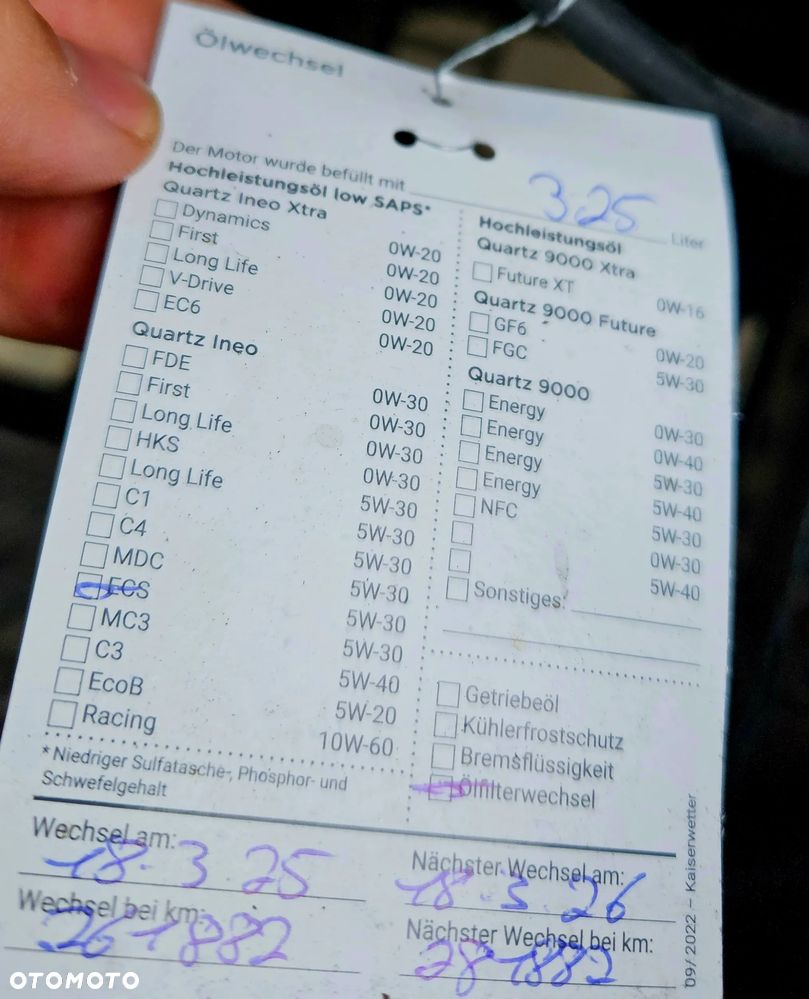 Ölwechsel
Der Motor wurde befüllt mit 3.25 Liter
Hochleistungsöl low SAPS*
Quartz Ineo Xtra
Dynamics 0W-20
First 0W-20
Long Life 0W-20
V-Drive 0W-20
EC6 0W-20
Quartz Ineo
FDE 0W-30
First 0W-30
Long Life 0W-30
HKS 0W-30
Long Life 5W-30
C1 5W-30
C4 5W-30
MDC 5W-30
ECS 5W-30
MC3 5W-30
C3 5W-40
EcoB 5W-20
Racing 10W-60
* Niedriger Sulfatasche-, Phosphor- und
Schwefelgehalt
Hochleistungsöl
Quartz 9000 Xtra
Future XT 0W-16
Quartz 9000 Future
GF6 0W-20
FGC 5W-30
Quartz 9000
Energy 0W-30
Energy 0W-40
Energy 5W-30
Energy 5W-40
NFC 5W-30
0W-30
5W-40
Sonstiges:
Getriebeöl
Kühlerfrostschutz
Bremsflüssigkeit
Ölfilterwechsel
Wechsel am:
18.3.25
Nächster Wechsel am:
18.3.26
Wechsel bei km:
261882
Nächster Wechsel bei km:
281882
09/2022 – Kaiserwetter
OTOMOTO